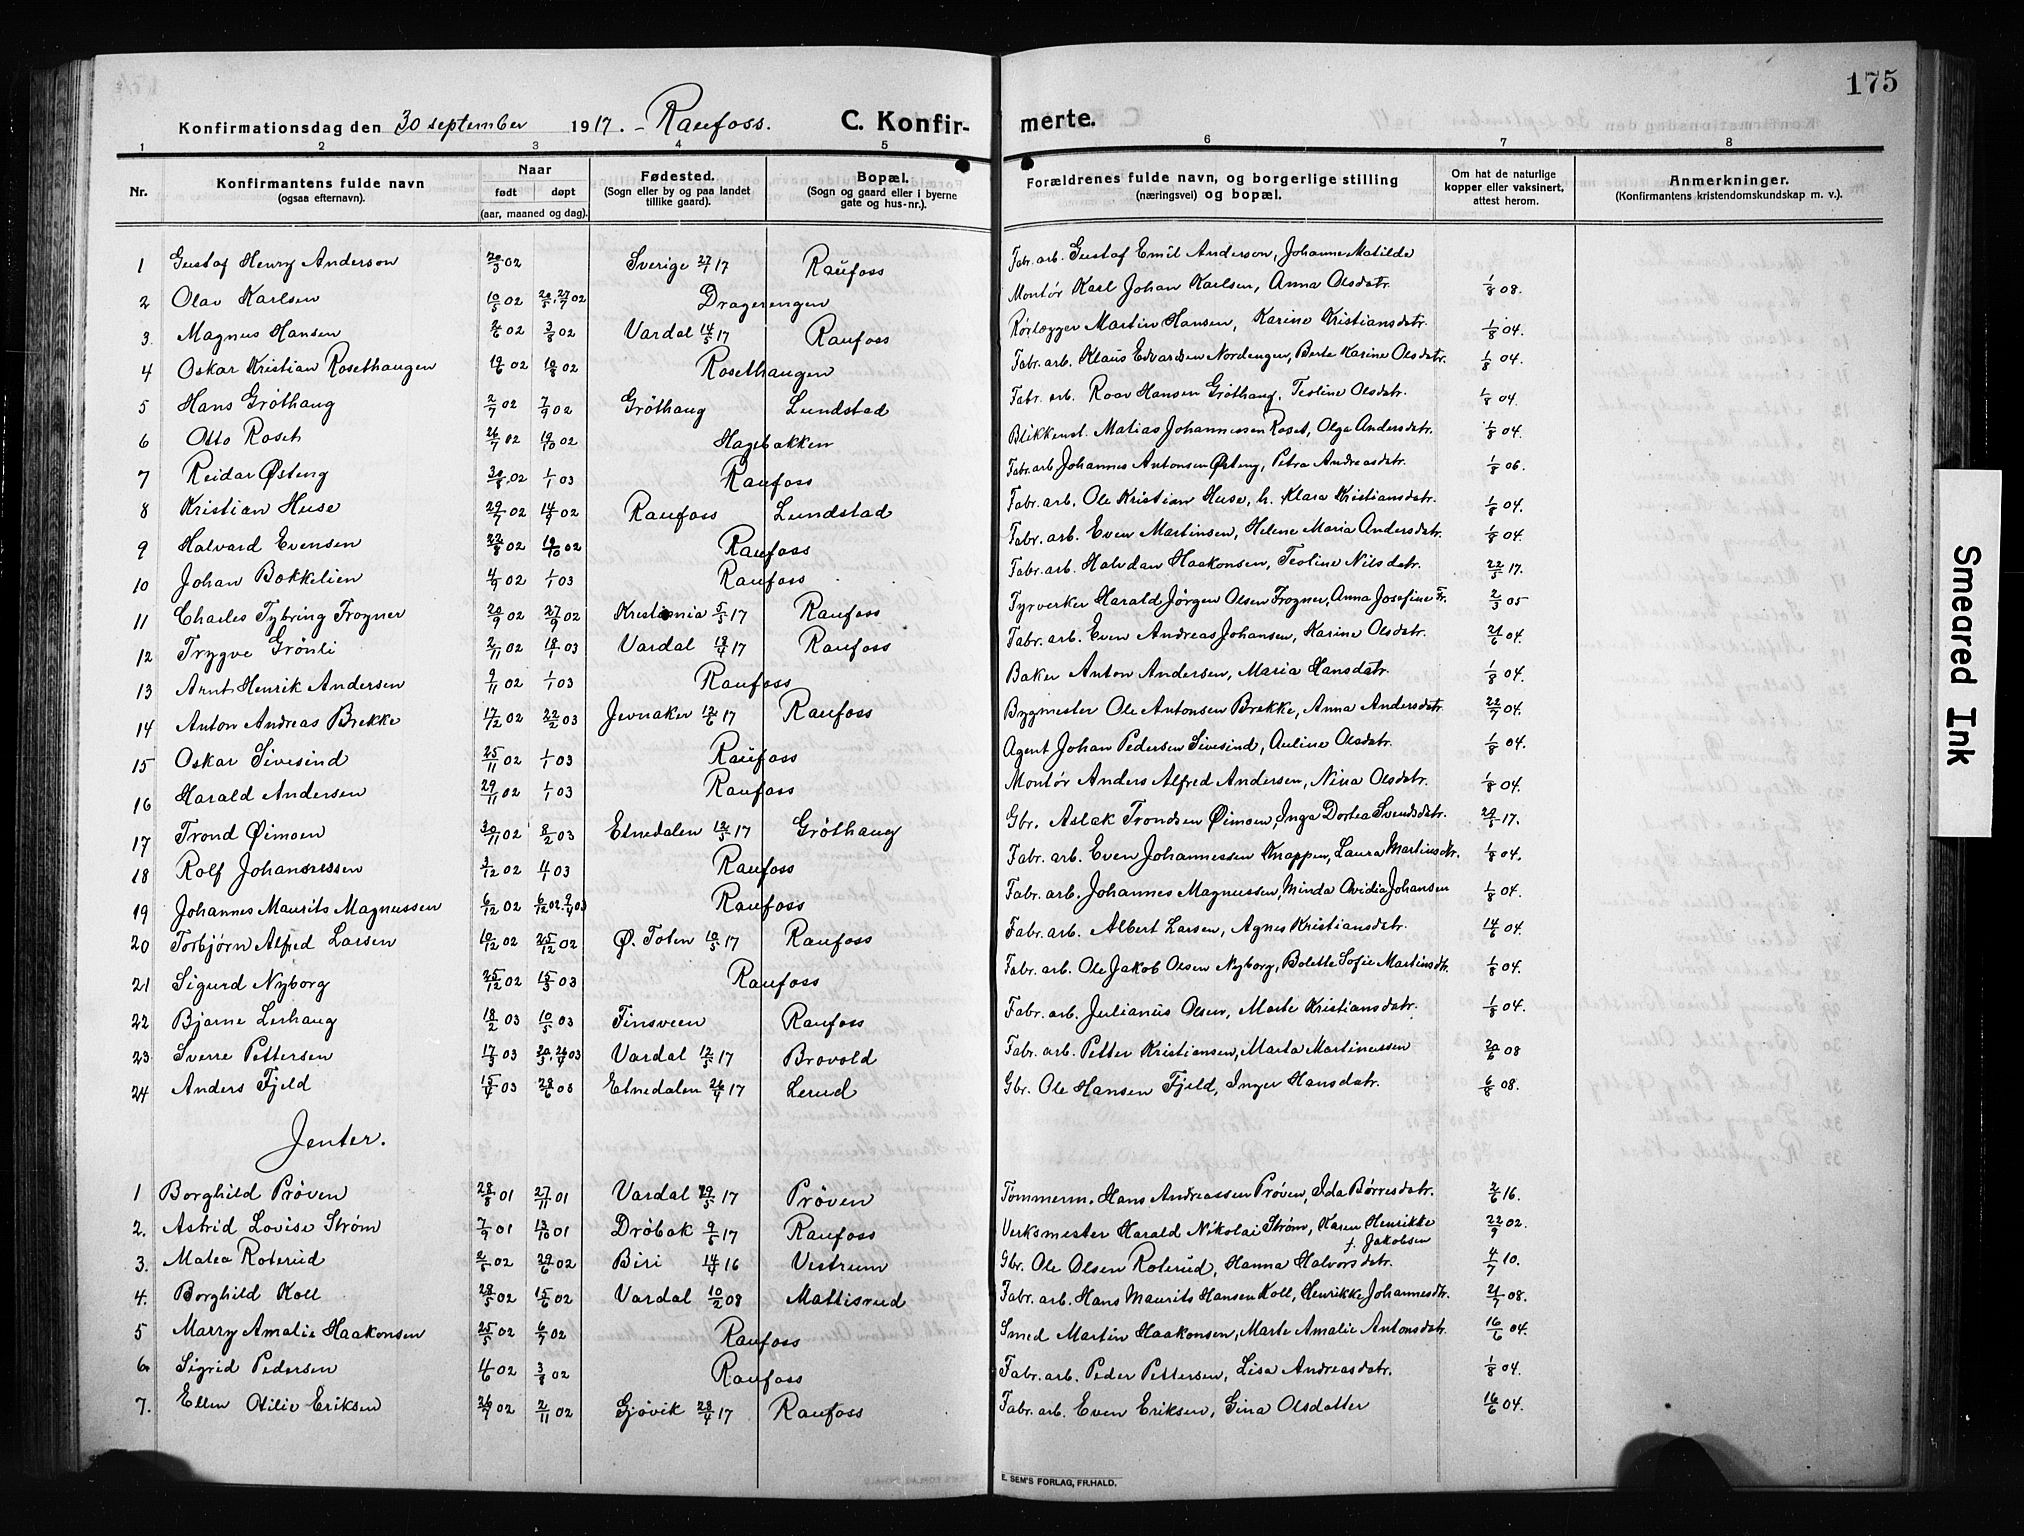 175
Konfirmationsdag den 30 september 1917. - Raufoss. C. Konfir- merte.
1 2 3 4 5 6 7 8
Nr. Konfirmantens fulde navn (ogsaa efternavn). Naar født døpt (aar, maaned og dag). Fødested. (Sogn eller by og paa landet tillike gaard). Bopæl. (Sogn og gaard eller i byerne gate og hus-nr.). Forældrenes fulde navn, og borgerlige stilling (næringsvei) og bopæl. Om hat de naturlige kopper eller vaksinert, attest herom. Anmerkninger. (Konfirmantens kristendomskundskap m. v.).
1 Gustaf Henry Anderson 20/3 02 Sverige 27/1 17 Raufoss Fabr. arb. Gustaf Emil Anderson, Johanne Matilde
2 Olav Karlsen 10/5 02 Dragerengen Montør Karl Johan Karlsen, Anna Olsdatr. 1/8 08.
3. Magnus Hansen 2/6 02 3/8 02 Vardal 14/5 17 Raufoss Rørlægger Martin Hansen, Karine Kristiansdatr. 1/8 04.
4 Oskar Kristian Rosethaugen 19/6 02 10/8 02 Rosethaugen Fabr. arb. Klaus Edvardsen Nordengen, Berte Karine Olsdatr. 1/8 04.
5 Hans Grøthaug 2/7 02 7/9 02 Grøthaug Lundstad Fabr. arb. Roar Hansen Grøthaug, Teoline Olsdatr. 1/8 04.
6 Otto Roset 26/7 02 19/10 02 Hagebakken Blikkensl. Matias Johannessen Roset, Olga Andersdatr. 1/8 04.
7 Reidar Østeng 30/8 02 1/1 03 Raufoss Fabr. arb Johannes Antonsen Østeng, Petra Andreasdatr. 1/8 06.
8 Kristian Huse 29/7 02 14/9 02 Raufoss Lundstad Fabr. arb. Ole Kristian Huse, h. Klara Kristiansdatr. 1/8 04.
9 Halvard Evensen 22/8 02 19/10 02 Raufoss Fabr. arb. Even Martinsen, Helene Maria Andersdatr. 1/8 04.
10 Johan Bakkelien 4/9 02 1/1 03 Raufoss Fabr. arb. Halvdan Haakonsen, Teoline Nilsdatr. 22/5 17.
11 Charles Tybring Frogner 20/9 02 27/9 02 Kristiania 5/5 17 Raufoss Fyrverker Harald Jørgen Olsen Frogner, Anna Josefine Fr. 2/3 05
12 Trygve Grønli 2/11 02 18/1 03 Vardal 18/4 17 Raufoss Fabr. arb. Even Andreas Johansen, Karine Olsdatr. 21/6 04.
13 Arnt Henrik Andersen 9/11 02 1/1 03 Raufoss Baker Anton Andersen, Maria Hansdatr. 1/8 04.
14 Anton Andreas Brekke 17/12 02 22/2 03 Jevnaker 12/6 17 Raufoss Bygmester Ole Antonsen Brekke, Anna Andersdatr. 22/7 04.
15 Oskar Sivesind 25/11 02 1/1 03 Raufoss Agent Johan Pedersen Sivesind, Auline Olsdatr. 1/8 04.
16 Harald Andersen 29/11 02 1/1 03 Raufoss Montør Anders Alfred Andersen, Nina Olsdatr. 1/8 04.
17 Trond Øimoen 30/11 02 8/2 03 Etnedalen 12/5 17 Grøthaug Gbr. Aslak Trondsen Øimoen, Inga Dortea Svendsdatr. 22/5 17.
18 Rolf Johannessen 3/12 02 4/1 03 Raufoss Fabr. arb. Even Johannessen Knappen, Laura Martinsdtr. 1/8 04.
19 Johannes Maurits Magnussen 6/12 02 6/12 02. 9/4 03 Raufoss Fabr. arb. Johannes Magnussen, Minda Ovidia Johansen 1/8 04.
20 Torbjørn Alfred Larsen 10/12 02 25/12 02 Ø. Toten 10/5 17 Raufoss Fabr. arb. Albert Larsen, Agnes Kristiansdatr. 14/6 04.
21 Sigurd Nyborg 25/12 02 15/3 03 Raufoss Fabr. arb. Ole Jakob Olsen Nyborg, Bolette Sofie Martinsdtr. 1/8 04.
22 Bjarne Lerhaug 18/2 03 10/5 03 Finsveen Raufoss Fabr. arb. Julianus Olsen, Marte Kristiansdatr. 1/8 04.
23 Sverre Pettersen 17/3 03 Vardal 12/5 17 Brovold Fabr. arb. Petter Kristiansen, Marta Martinussen 20/6 08
24 Anders Fjeld 15/4 03 28/6 03 Etnedalen 26/4 17 Lerud Gbr. Ole Hansen Fjeld, Inger Hansdatr. 6/8 08.
Jenter.
1 Borghild Prøven 28/8 01 27/11 01 Vardal 29/5 17 Prøven Tømmerm. Hans Andreassen Prøven, Ida Børresdatr. 2/6 16.
2. Astrid Lovise Strøm 7/9 01 13/10 01 Drøbak 9/6 17 Raufoss Verksmester Harald Nikolai Strøm, Karen Henrikke f. Jakobsen 22/9 02.
3. Matea Roterud 2/5 02 29/6 02 Biri 14/4 16 Vestrum Gbr. Ole Olsen Roterud, Hanna Halvorsdatr. 4/7 10.
4. Borghild Koll 28/5 02 15/6 02 Vardal 10/2 08 Mattisrud Fabr. arb. Hans Maurits Hansen Koll, Henrikke Johannesdtr. 21/7 08.
5 Marry Amalie Haakonsen 25/5 02 6/7 02 Raufoss Smed Martin Haakonsen, Marte Amalie Antonsdatr. 16/6 04.
6. Sigrid Pedersen 4/6 02 3/8 02 Raufoss Fabr. arb. Peder Pettersen, Lisa Andreasdatr. 1/8 04.
7. Ellen Otilie Eriksen 26/7 02 2/11 02 Gjøvik 28/4 17 Raufoss Fabr. arb. Even Eriksen, Gina Olsdatter 16/6 04.
E. SEM'S FORLAG, FR.HALD.
Smeared Ink